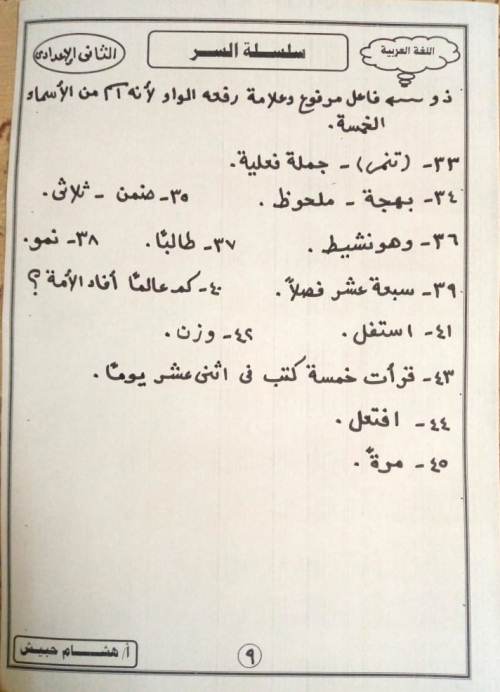 اللغة العربية
سلسلة السر
الثانى الإعدادى
ذو ← فاعل مرفوع وعلامة رفعه الواو لأنه اسم من الأسماء
الخمسة.
٣٣- (تنمر) - جملة فعلية.
٣٤- بهجة - ملحوظ. ٣٥- ضمن - ثلاثى.
٣٦- وهو نشيط. ٣٧- طالبًا. ٣٨- نمو.
٣٩- سبعة عشر فصلاً. ٤٠- كم عالمًا أفاد الأمة؟
٤١- استفل. ٤٢- وزن.
٤٣- قرأت خمسة كتب فى اثنى عشر يومًا.
٤٤- افتعل.
٤٥- مرةً.
٩
أ/ هشام حبيش